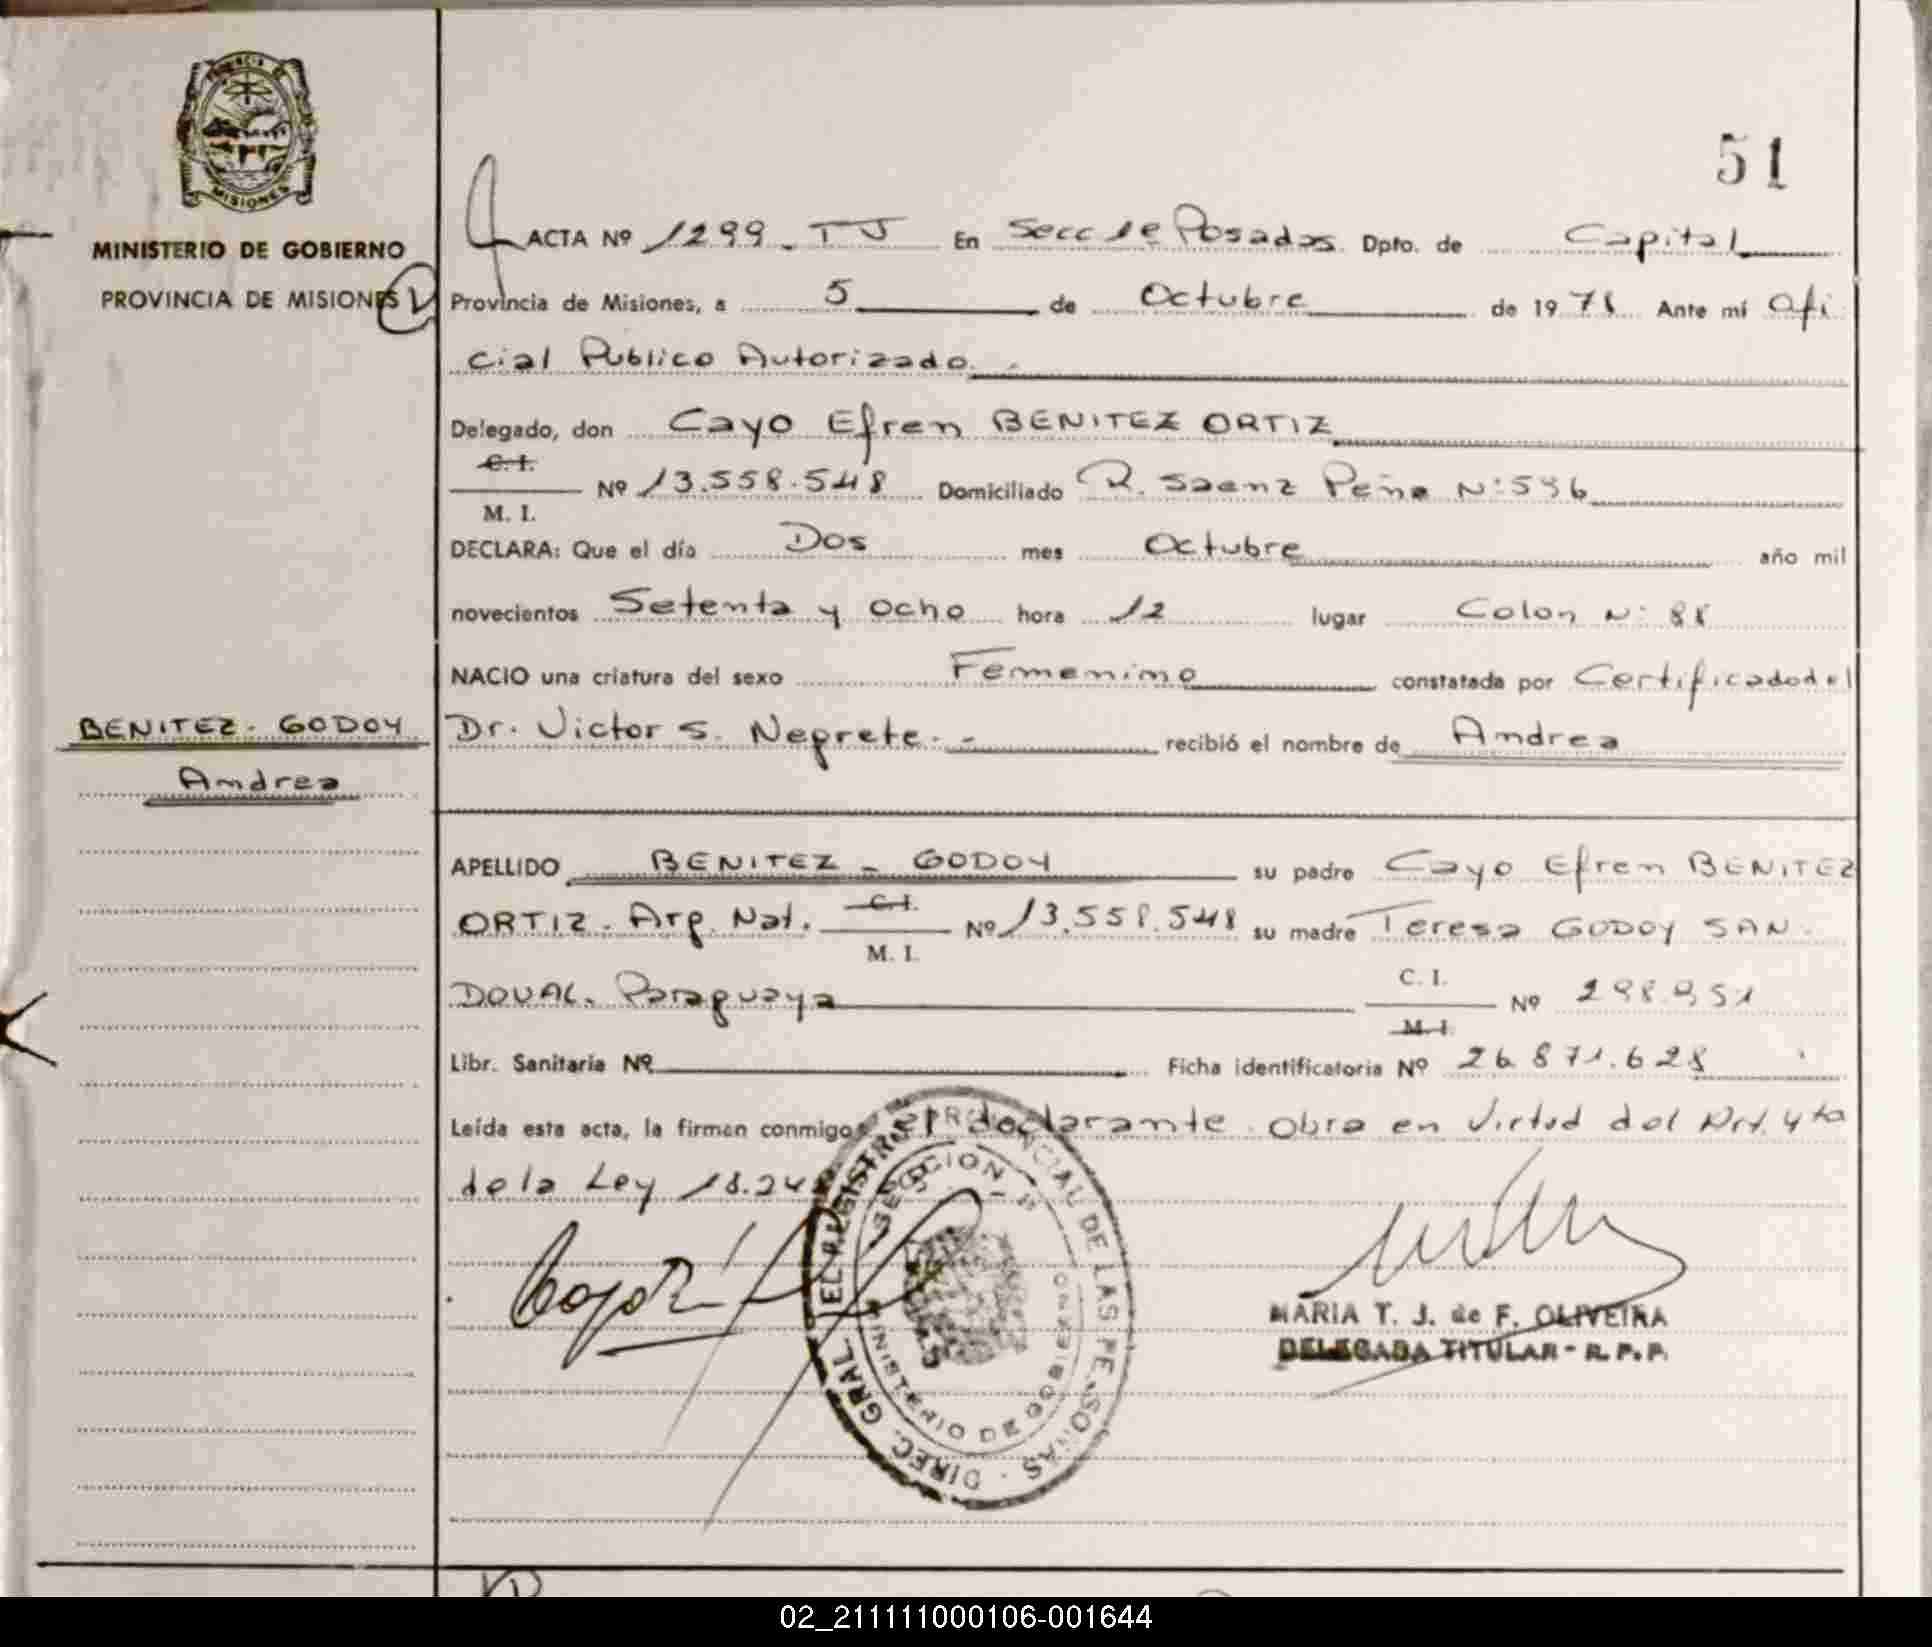 PROVINCIA DE
MISIONES
MINISTERIO DE GOBIERNO
PROVINCIA DE MISIONES
51
ACTA Nº 1299. TJ En Secc 1e Posadas. Dpto. de Capital
Provincia de Misiones, a 5 de Octubre de 1978 Ante mí Ofi
cial Publico Autorizado.-
Delegado, don Cayo Efren BENITEZ ORTIZ
C. I.
Nº 13.558.548 Domiciliado R. Saenz Peña Nº:
M. I.
DECLARA: Que el día Dos mes Octubre año mil
novecientos Setenta y ocho hora 12 lugar Colon Nº 88
NACIO una criatura del sexo Femenino constatada por Certificado del
Dr. Victor S. Negrete.- recibió el nombre de Andrea
BENITEZ - GODOY
Andrea
APELLIDO BENITEZ - GODOY su padre Cayo Efren BENITEZ
C. I.
ORTIZ. Arg. Nat. Nº 13.558.548 su madre Teresa GODOY SAN
M. I.
C. I.
DOVAL. Paraguaya Nº 298.951
M. I.
Libr. Sanitaria Nº Ficha identificatoria Nº 26.871.628
Leída esta acta, la firman conmigo el declarante. Obra en Virtud del Art. 4to
de la Ley 18.24
DIREC. GRAL. EL REGISTRO PROVINCIAL DE LAS PERSONAS
SECCION
MINISTERIO DE GOBIERNO
MARIA T. J. de F. OLIVEIRA
DELEGADA TITULAR - R. P. P.
02_211111000106-001644